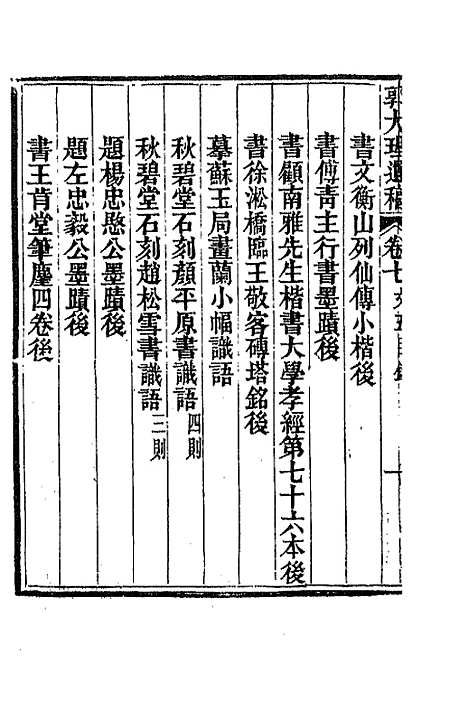 郭大理遺稿 卷七 文五目錄 一
書文衡山列仙傳小楷後
書傅靑主行書墨蹟後
書顧南雅先生楷書大學孝經第七十六本後
書徐淞橋臨王敬客磚塔銘後
摹蘇玉局畫蘭小幅識語
秋碧堂石刻顏平原書識語 四則
秋碧堂石刻趙松雪書識語 三則
題楊忠愍公墨蹟後
題左忠毅公墨蹟後
書王肯堂筆塵四卷後